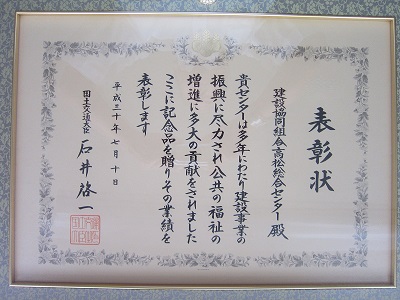 表彰状
建設協同組合高松総合センター殿
貴センターは多年にわたり建設事業の
振興に尽力され公共の福祉の
増進に多大の貢献をされました
ここに記念品を贈りその業績を
表彰します
平成三十年七月十日
国土交通大臣 石井啓一